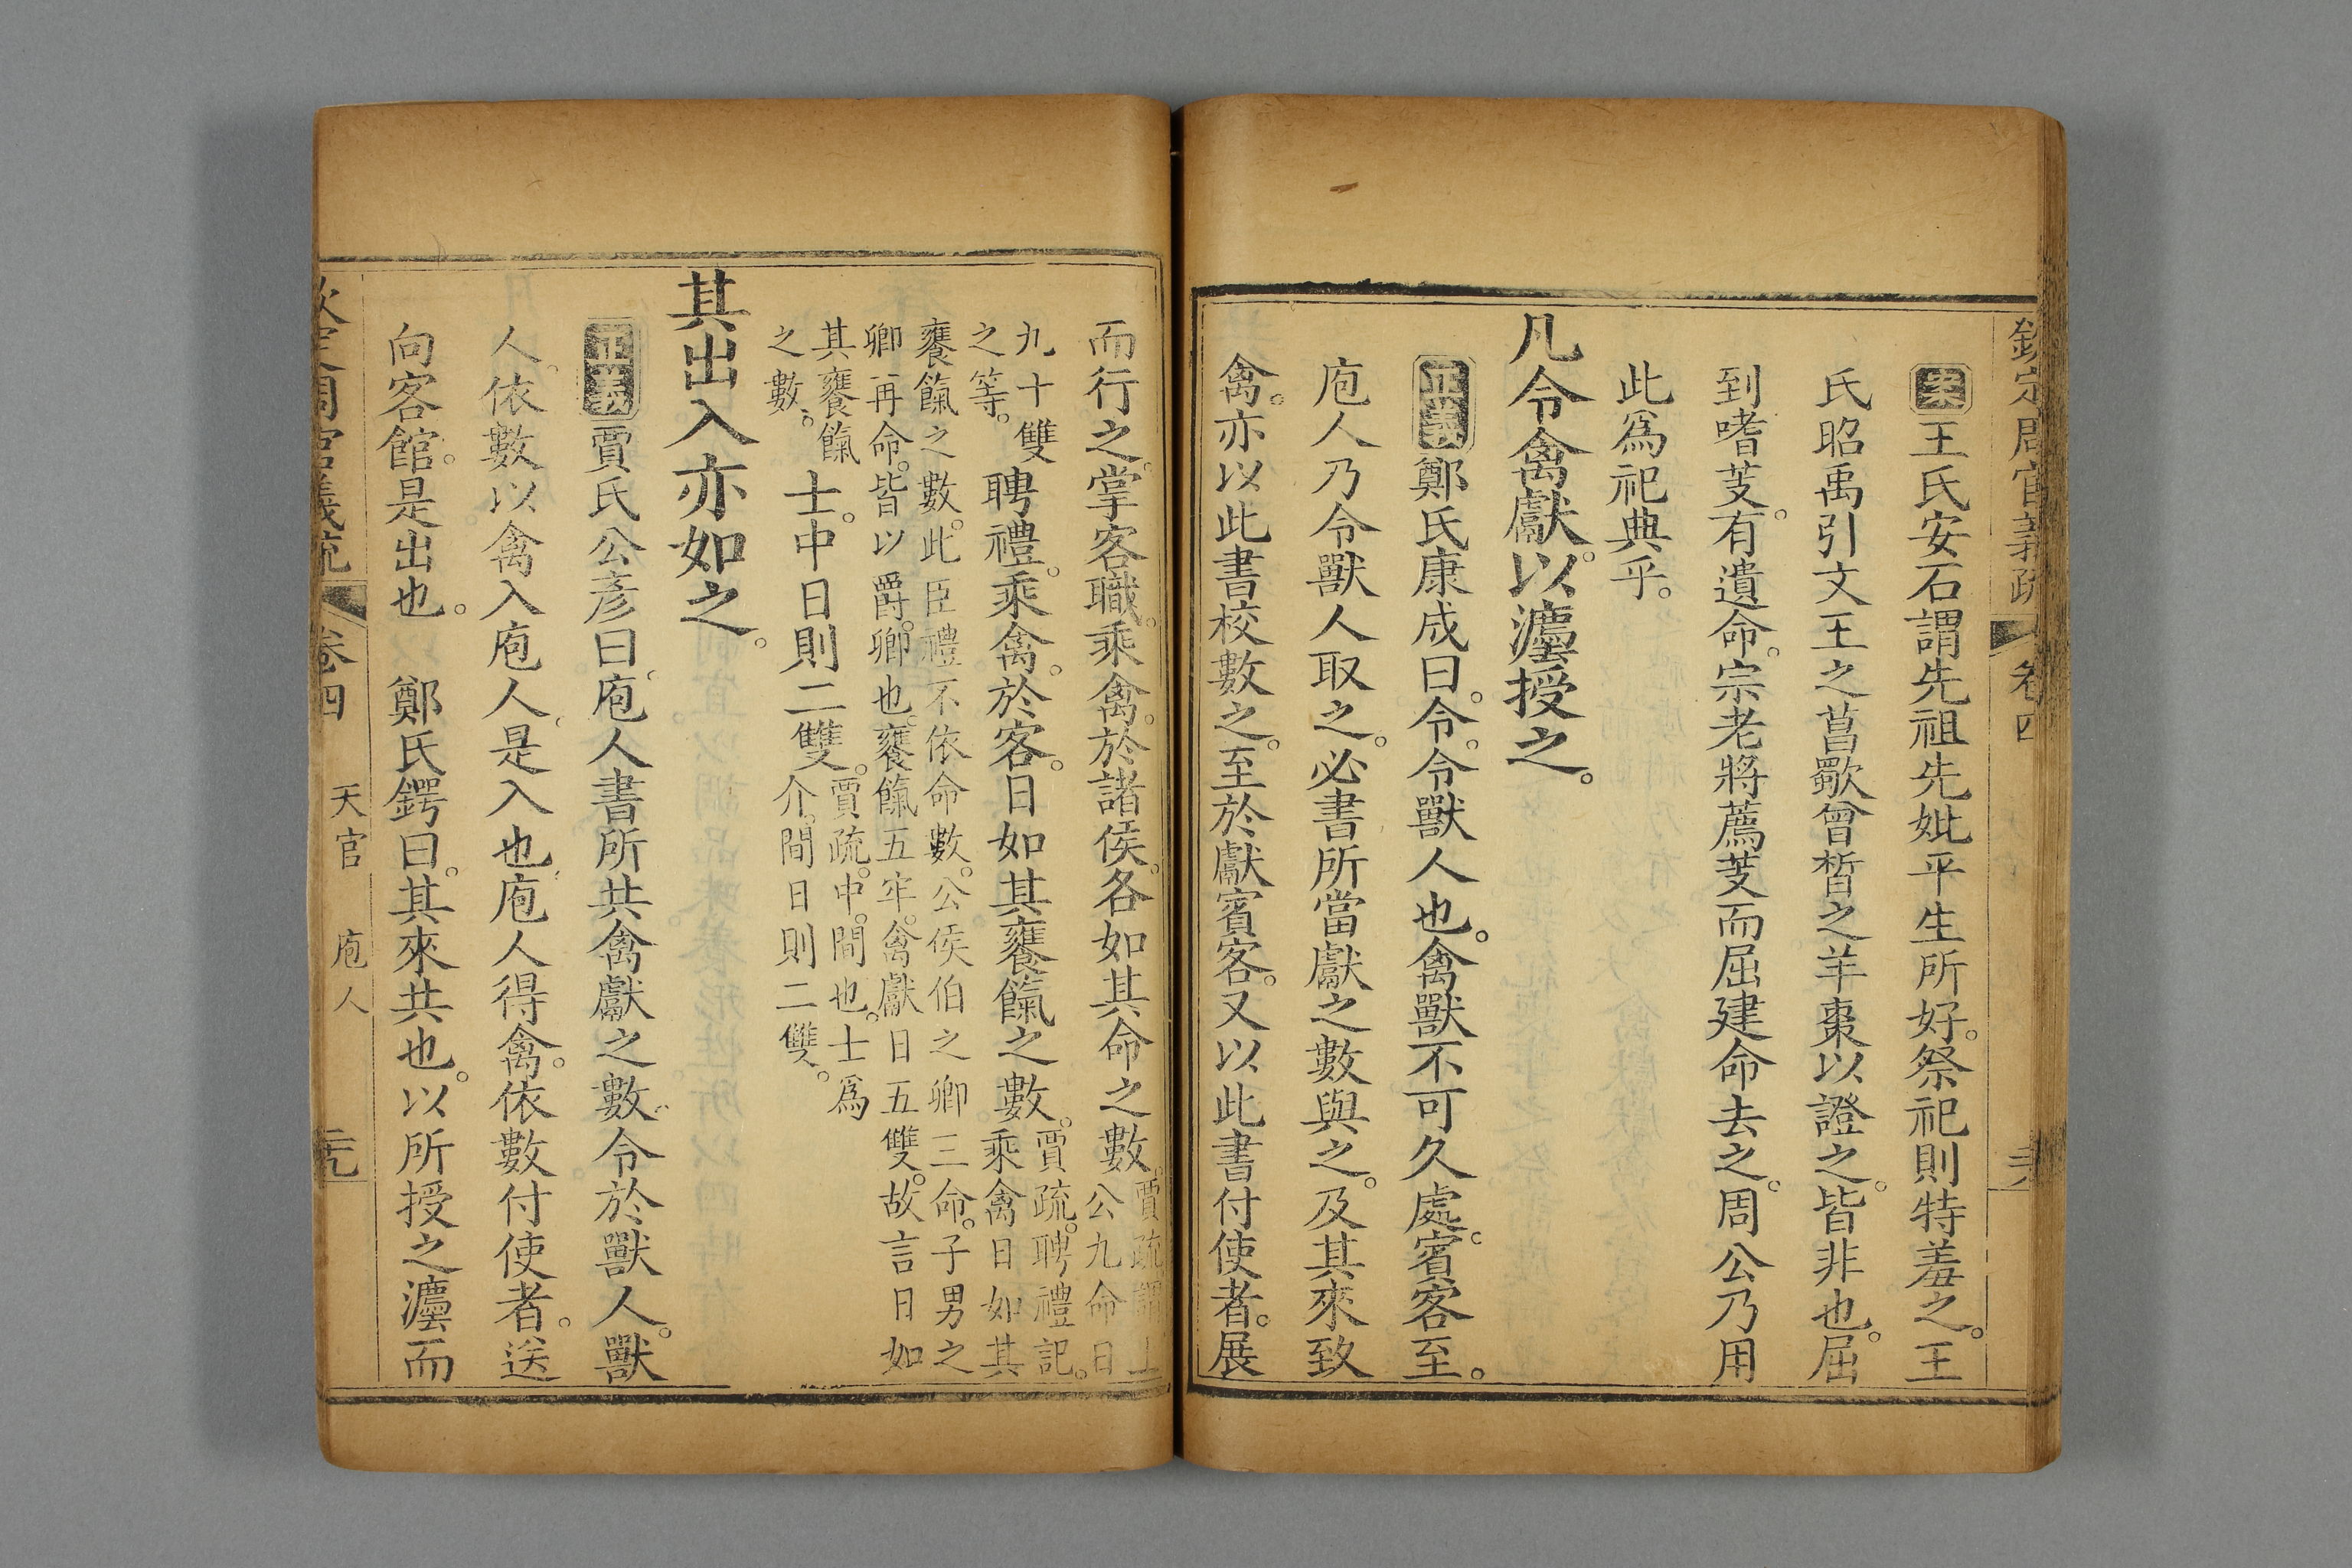 欽定周官義疏 卷四
案王氏安石謂先祖先妣平生所好。祭祀則特羞之。王
氏昭禹引文王之菖歜曾晳之羊棗以證之。皆非也。屈
到嗜芰。有遺命。宗老將薦芰而屈建命去之。周公乃用
此爲祀典乎。
凡令禽獻。以灋授之。
正義鄭氏康成曰。令。令獸人也。禽獸不可久處。賓客至。
庖人乃令獸人取之。必書所當獻之數與之。及其來致
禽。亦以此書校數之。至於獻賓客。又以此書付使者。展
而行之。掌客職。乘禽。於諸侯。各如其命之數。賈疏。謂上
公九命日
九十雙
之等。聘禮。乘禽。於客。日如其饔餼之數。賈疏。聘禮記。
乘禽日如其
饔餼之數。此臣禮不依命數。公侯伯之卿三命。子男之
卿再命。皆以爵。卿也。饔餼五牢。禽獻日五雙。故言日如
其饔餼
之數。士。中日則二雙。賈疏。中。間也。士爲
介。間日則二雙。
其出入亦如之。
正義賈氏公彥曰。庖人書所共禽獻之數。令於獸人。獸
人。依數以禽入庖人。是入也。庖人得禽。依數付使者。送
向客館。是出也。 鄭氏鍔曰。其來共也。以所授之灋而
欽定周官義疏 卷四 天官 庖人 元